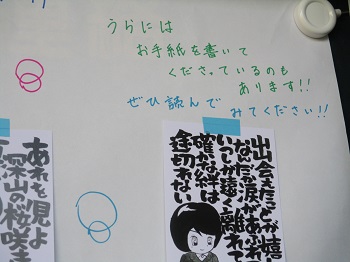 うらには
お手紙を書いて
くださっているのも
あります!!
ぜひ読んで みてください!!
出会えたことが嬉
なんだか涙があふれ
いつか遠く離れて
確かな絆は
途切れない
あれを見よ
深山の桜咲